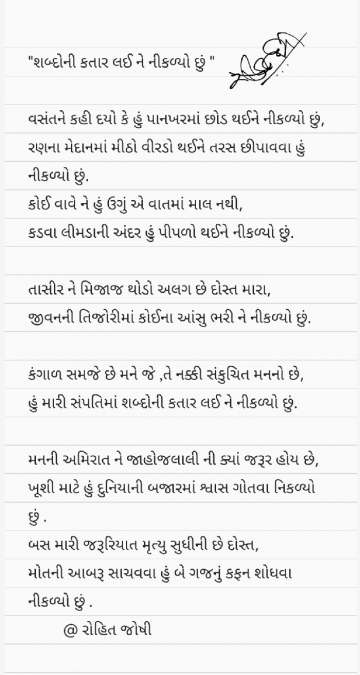 "શબ્દોની કતાર લઈ ને નીકળ્યો છું "
વસંતને કહી દયો કે હું પાનખરમાં છોડ થઈને નીકળ્યો છું,
રણના મેદાનમાં મીઠો વીરડો થઈને તરસ છીપાવવા હું
નીકળ્યો છું.
કોઈ વાવે ને હું ઉગું એ વાતમાં માલ નથી,
કડવા લીમડાની અંદર હું પીપળો થઈને નીકળ્યો છું.
તાસીર ને મિજાજ થોડો અલગ છે દોસ્ત મારા,
જીવનની તિજોરીમાં કોઈના આંસુ ભરી ને નીકળ્યો છું.
કંગાળ સમજે છે મને જે ,તે નક્કી સંકુચિત મનનો છે,
હું મારી સંપતિમાં શબ્દોની કતાર લઈ ને નીકળ્યો છું.
મનની અમિરાત ને જાહોજલાલી ની ક્યાં જરૂર હોય છે,
ખૂશી માટે હું દુનિયાની બજારમાં શ્વાસ ગોતવા નિકળ્યો
છું .
બસ મારી જરૂરિયાત મૃત્યુ સુધીની છે દોસ્ત,
મોતની આબરૂ સાચવવા હું બે ગજનું કફન શોધવા
નીકળ્યો છું .
@ રોહિત જોષી